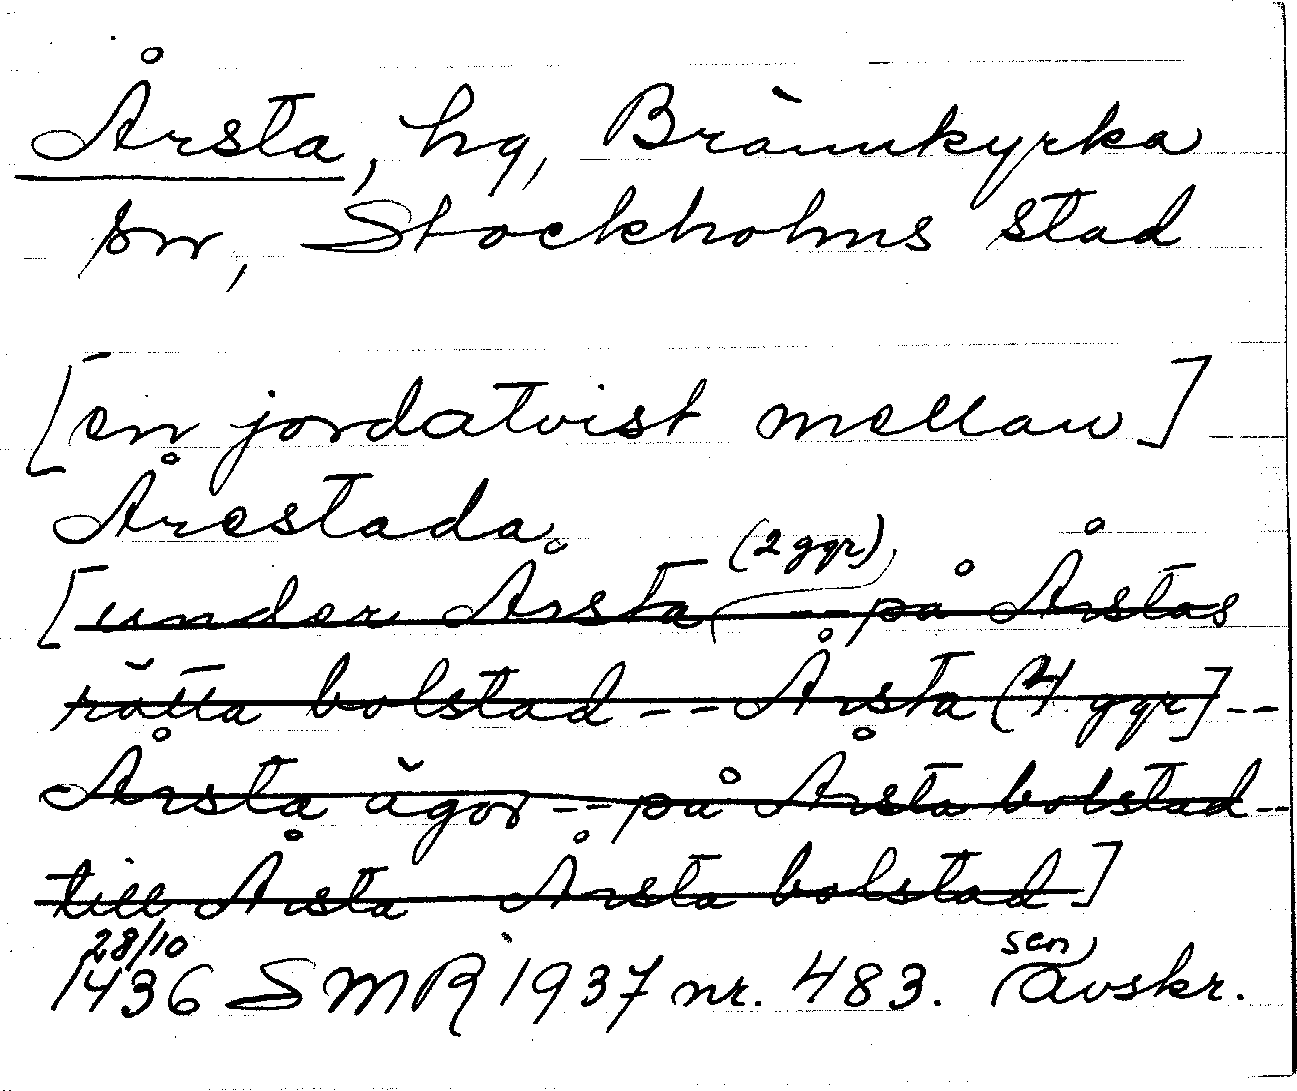 Årsta, hg, Brännkyrka
sn, Stockholms stad
[en jordatvist mellan]
Årestada
[under Årsta (2 ggr) -- på Årstas
rätta bolstad -- Årsta (4 ggr] --
Årsta ägor -- på Årsta bolstad --
till Årsta Årsta bolstad]
28/10 1436 SMR 1937 nr. 483. sen avskr.